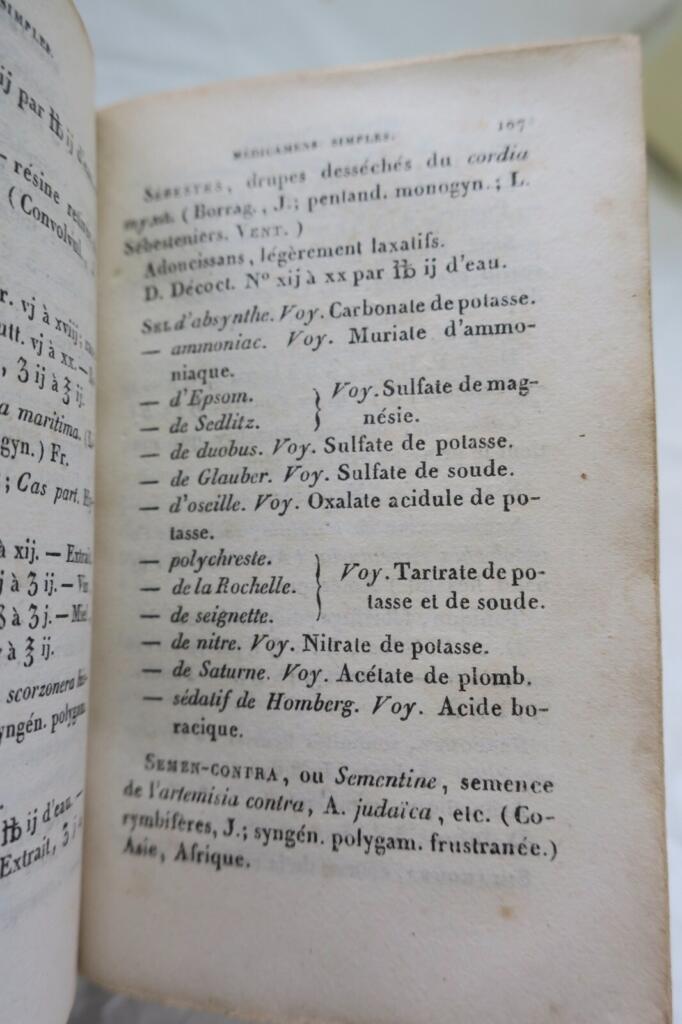 SIMPLES.
ij par ℔ ij d'eau
— résine
(Convolvul.
r. vj à xviij;
utt. vj à xx. —
, ʒ ij à ʒ ij.
a maritima. (L
gyn.) Fr.
; Cas part.
à xij. — Extrait
j à ʒ ij. — Vin
à ʒ j. — Miel
à ʒ ij.
scorzonera
yngén. polygam.
℔ ij d'eau. —
Extrait, ʒ
MÉDICAMENS SIMPLES. 167
SÉBESTES, drupes desséchés du cordia
myxa. (Borrag., J.; pentand. monogyn.; L.
Sébesteniers. VENT.)
Adoucissans, légèrement laxatifs.
D. Décoct. N° xij à xx par ℔ ij d'eau.
SEL d'absynthe. Voy. Carbonate de potasse.
— ammoniac. Voy. Muriate d'ammo-
niaque.
— d'Epsom. } Voy. Sulfate de mag-
— de Sedlitz. nésie.
— de duobus. Voy. Sulfate de potasse.
— de Glauber. Voy. Sulfate de soude.
— d'oseille. Voy. Oxalate acidule de po-
tasse.
— polychreste. } Voy. Tartrate de po-
— de la Rochelle. tasse et de soude.
— de seignette.
— de nitre. Voy. Nitrate de potasse.
— de Saturne. Voy. Acétate de plomb.
— sédatif de Homberg. Voy. Acide bo-
racique.
SEMEN-CONTRA, ou Sementine, semence
de l'artemisia contra, A. judaïca, etc. (Co-
rymbifères, J.; syngén. polygam. frustranée.)
Asie, Afrique.